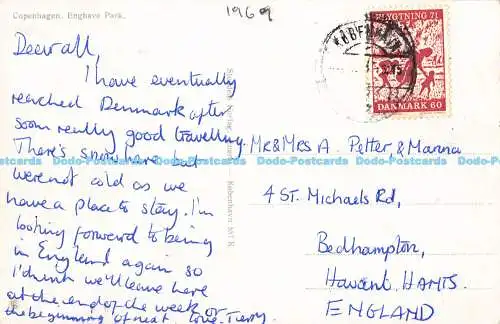 Copenhagen. Enghave Park.
1969
Dear all,
I have eventually
reached Denmark after
som really good travelling.
There's snow here but
were not cold as we
have a place to stay. I'm
looking forward to being
in England again so
I think we'll leave here
at the end of the week or
the beginning of next Love Terry
København
FLYGTNING 71
DANMARK 60
KØBENHAVN
Mr & Mrs A. Petter & Marina
4 St. Michaels Rd,
Bedhampton,
Havant HANTS.
ENGLAND
Dodo-Postcards Dodo-Postcards Dodo-Postcards Dodo-Postcards Dodo-Postcards Dodo-Postcards